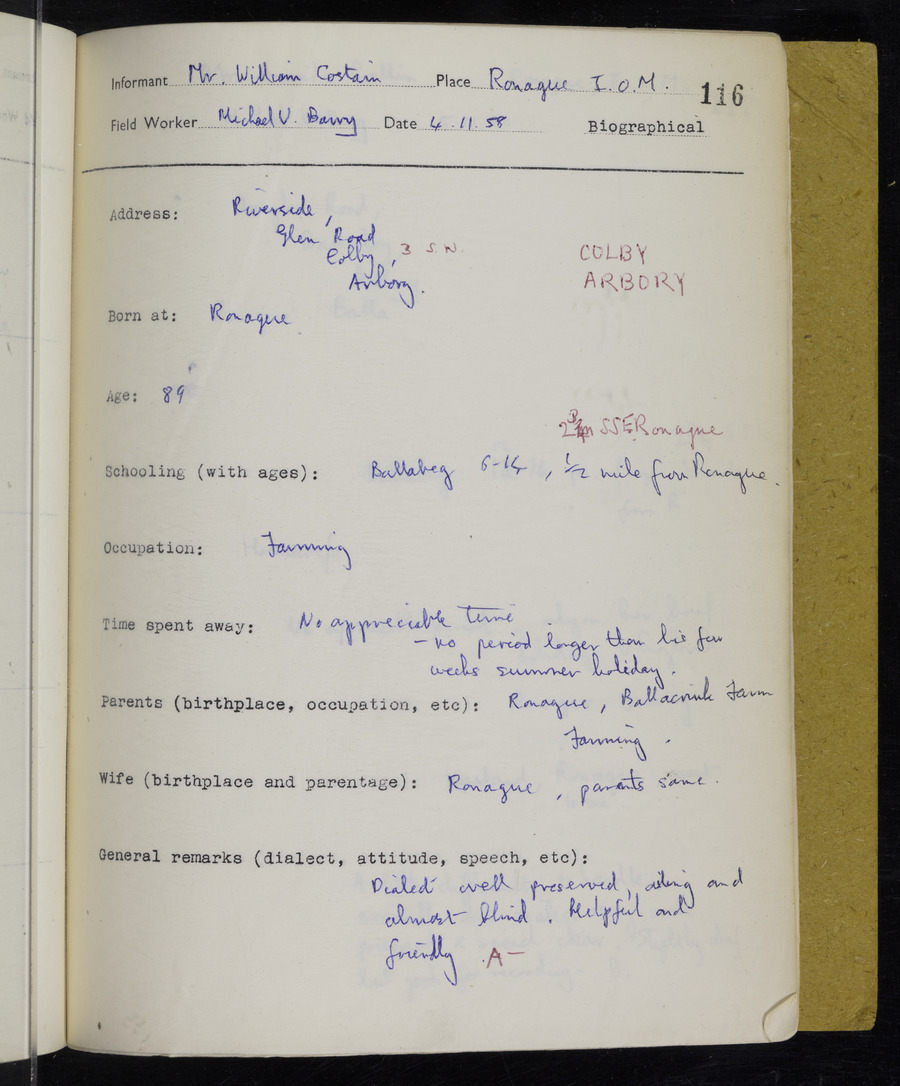 Informant Mr. William Costain Place Ronague I.O.M. 116
Field Worker Michael V. Barry Date 4.11.58 Biographical
Address: Riverside,
Glen Road
Colby, 3 S.W. COLBY
Arbory. ARBORY
Born at: Ronague
Age: 89
SSE Ronague
Schooling (with ages): Ballabeg 6-14, 1/2 mile from Ronague.
Occupation: Farming
Time spent away: No appreciable time
- no period longer than his few
weeks summer holiday.
Parents (birthplace, occupation, etc): Ronague, Farm
Farming.
Wife (birthplace and parentage): Ronague, parents same.
General remarks (dialect, attitude, speech, etc):
Dialect well preserved, ailing and
almost blind. Helpful and
friendly A-